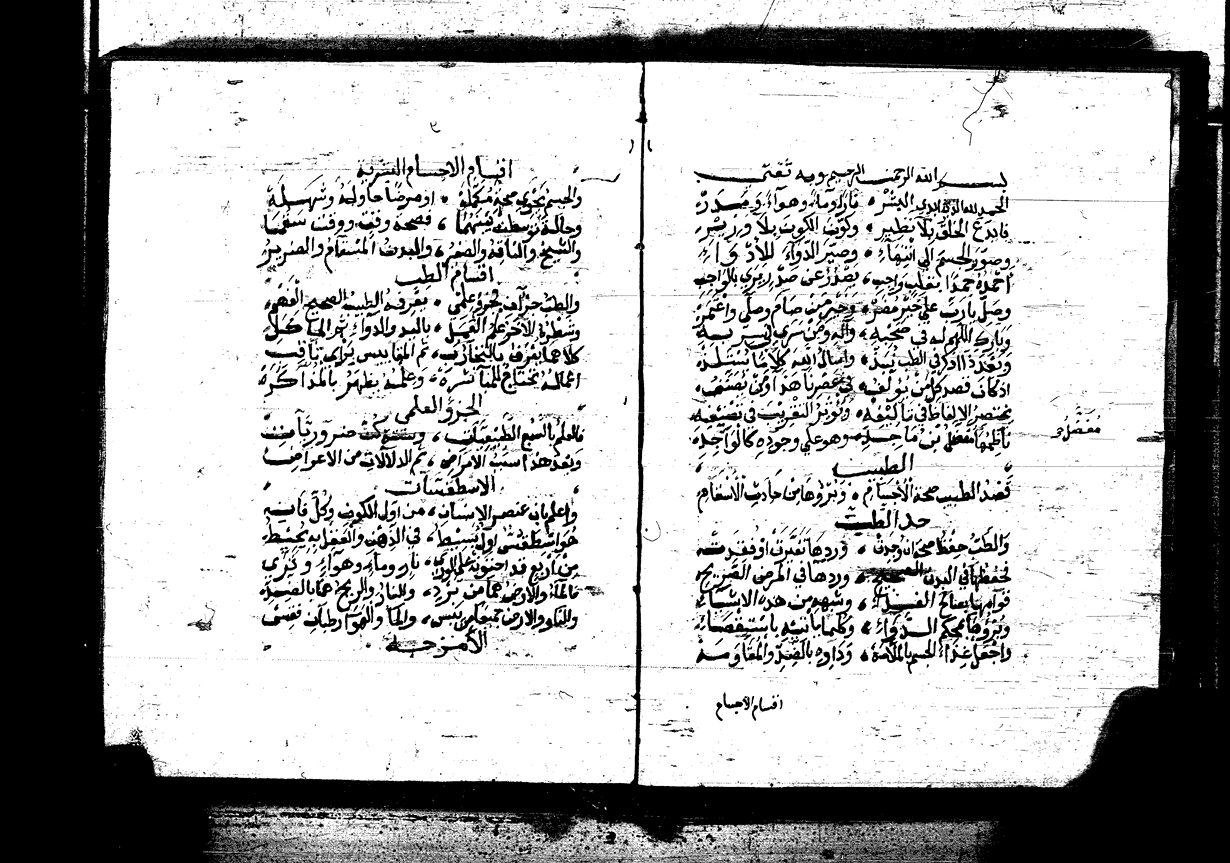 بسم الله الرحمن الرحيم وبه ثقتي
الحمد لله الذي البشر نارا وماء وهواء ومدر
فابدع الخلق بلا نظير وكون الكون بلا وزير
وصور الجسم الى انتهاء وصير الدواء للادواء
احمده حمدا بقلب واجب يصدر عن صدر يرى بالواجب
وصل يا رب على خير مضر وخير من صام وصلى واعتمر
وبارك اللهم له في صحبه واله ومن سرى في سربه
وبعد ذا اذكر في الطب نبذ واسال الله كلاما يستلذ
اذ كان قصد كل من يولف في عصرنا هذا ومن يصنف
يختصر الالفاظ في تاليفه ويوثر التقريب في تصنيفه
ناظمها مفضل بن ماجد وهو على وجوده كالواجد
مفضل
الطبيب
قصد الطبيب صحة الاجسام وبروها من حادث الاسقام
حد الطب
والطب حفظ صحة ان وجدت وردها تقديرا او فقدت
تحفظها في البدن الصحيح وردها في المرض
قوامها بصالح الغذاء وشبهه من هذه الاشياء
وبروها بمحكم الدواء وكلما ياتيه باستقصاء
واجعل غذاء الجسم بالملامة وداوه بالضد والمقاومة
اقسام الاجسام
اقسام الاجسام البشرية
والجسم يحوي صحة مكملة او مرضا حاوله وشه له
وحالة توسطت بينهما فصحة وقت ووقت سقما
والشيخ والناقه والصغير والبدن المسقام والضرير
اقسام الطب
والطب جزان فجزو علمي يعرفه الطبيب الصحيح الفهم
وشطره الاخر علم العمل باليد والدواء ثم الماكل
كلاهما يعرف بالتجارب ثم المقاييس براي ثاقب
اعماله تحتاج للمباشرة وعلمه يظهر بالمذاكرة
الجزو العلمي
فالعلم بالسبع الطبيعيات وست ضروريات
وبعد هذا سبب الامراض ثم الدلالات من الاعراض
الاسطقسات
واعلم بان عنصر الانسان من اول الكون وكل فان
هو اسطقس اول بسيط في الذهن والعقل به محيط
من اربع قد احتوته نار وماء وهواء وثرى
فالماء والارض هما من برد والنار والريح هما بالضد
والنار والارض جميعا من يبس والماء والهوا رطبان
الامزجة